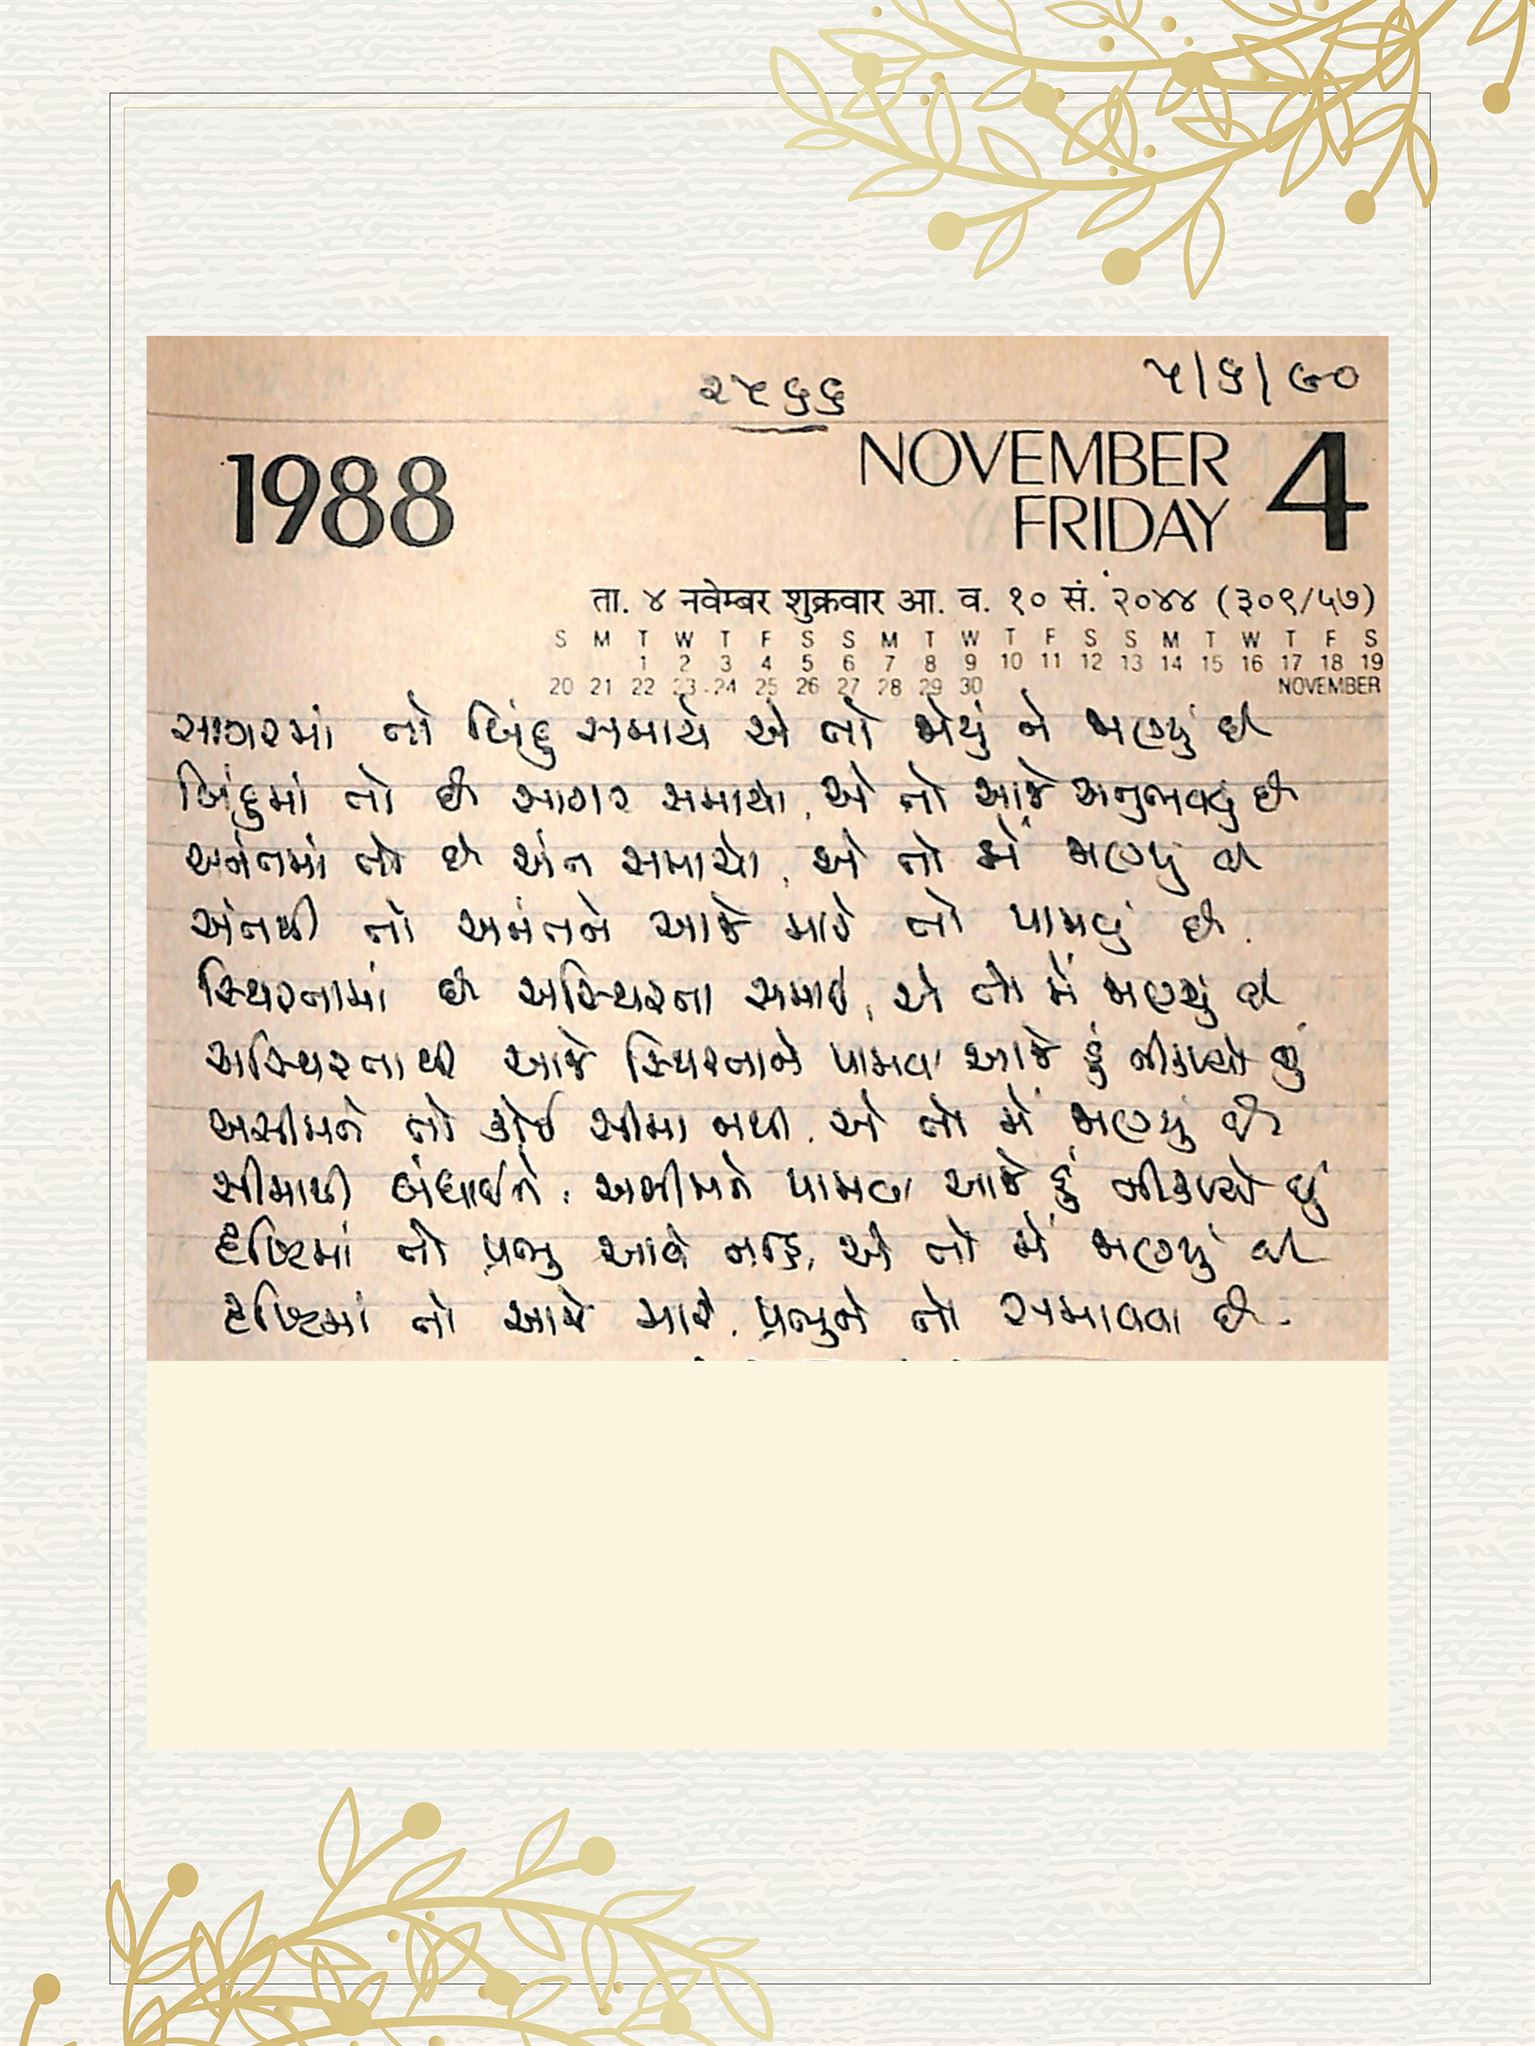 ૨૫૬૬
૫/૬/૯૦
1988
NOVEMBER 4
FRIDAY
ता. ४ नवेम्बर शुक्रवार आ. व. १० सं. २०४४ (३०९/५७)
S M T W T F S S M T W T F S S M T W T F S
1 2 3 4 5 6 7 8 9 10 11 12 13 14 15 16 17 18 19
20 21 22 23 24 25 26 27 28 29 30 NOVEMBER
સાગરમાં તો બિંદુ સમાયે એ તો જોયું ને જાણ્યું છે
બિંદુમાં તો છે સાગર સમાયો, એ તો આજે અનુભવવું છે
અનંતમાં તો છે અંત સમાયો, એ તો મેં જાણ્યું છે
અંતથી તો અનંતને આજે મારે તો પામવું છે.
સ્થિરતામાં છે અસ્થિરતા સમાઈ, એ તો મેં જાણ્યું છે
અસ્થિરતાથી આજે સ્થિરતાને પામવા આજે હું નીકળ્યો છું
અસીમને તો કોઈ સીમા નથી, એ તો મેં જાણ્યું છે
સીમાથી બંધાઈને, અસીમને પામવા આજે હું નીકળ્યો છું
દૃષ્ટિમાં તો પ્રભુ આવે નહિ, એ તો મેં જાણ્યું છે
દૃષ્ટિમાં તો આજે મારે, પ્રભુને તો સમાવવા છે.